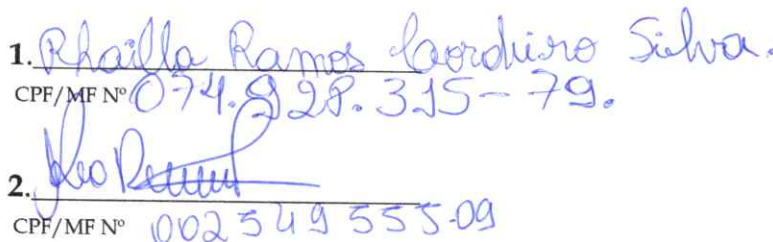 1. Rhailla Ramos Cordeiro Silva.
CPF/MF Nº 074.928.315-79.
2.
CPF/MF Nº 002549555-09